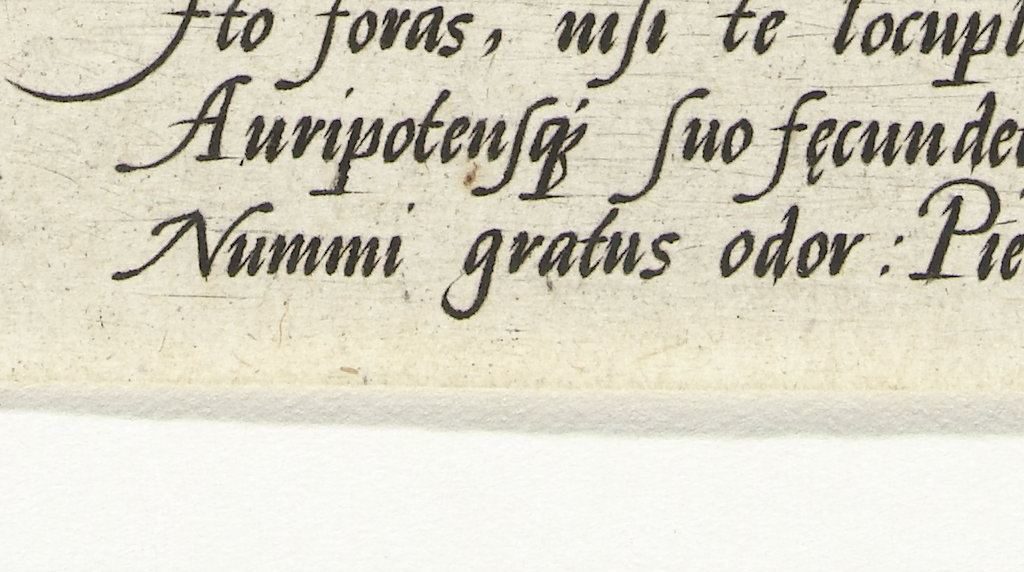 Ito foras, niſi te locupl
Auripotenſq́; ſuo fęcundet
Nummi gratus odor : Pie